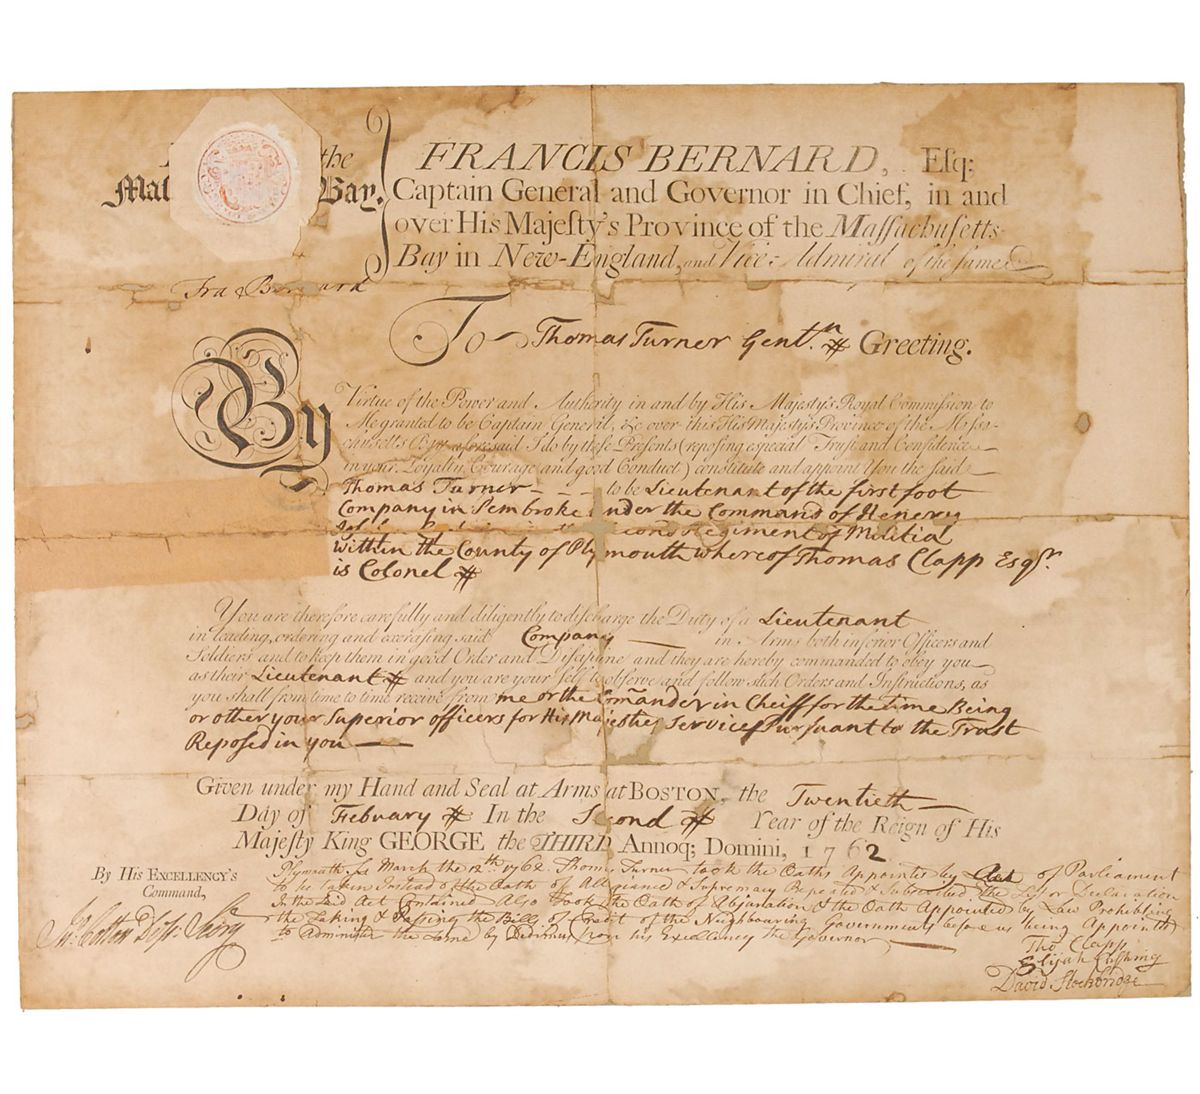 the
Mas Bay.
FRANCIS BERNARD, Esq;
Captain General and Governor in Chief, in and
over His Majesty's Province of the Massachusetts
Bay in New-England, and Vice-Admiral of the same
Fra Bernard
To Thomas Turner Gentn Greeting.
By Virtue of the Power and Authority in and by His Majesty's Royal Commission to
Me granted to be Captain General, &c over this His Majesty's Province of the Massa-
chusetts Bay aforesaid I do by these Presents (reposing especial Trust and Confidence
in your Loyalty, Courage and good Conduct) constitute and appoint You the said
Thomas Turner - - - to be Lieutenant of the first foot
Company in Pembroke under the Command of Henerey
Second Regiment of Militia
within the County of Plymouth whereof Thomas Clapp Esqr.
is Colonel
You are therefore carefully and diligently to discharge the Duty of a Lieutenant
in leading, ordering and exercising said Company in Arms both inferior Officers and
Soldiers and to keep them in good Order and Discipline and they are hereby commanded to obey you
as their Lieutenant and you are your self to observe and follow such Orders and Instructions, as
you shall from time to time receive from me or the Comander in Cheiff for the time Being
or other your Superior officers for His Majesties Service Pursuant to the Trust
Reposed in you
Given under my Hand and Seal at Arms at BOSTON, the Twentieth
Day of February In the Second Year of the Reign of His
Majesty King GEORGE the THIRD Annoq; Domini, 1762
By His EXCELLENCY'S
Command,
Jn. Cotton Dpy. Secry
Plymouth Ss March the 12th 1762. Thomas Turner took the Oaths Appointed by Act of Parliament
to be taken Instead of the Oath of Allegiance & Supremacy Repeated & Subscribed the Test or Declaration
In the said Act Contained Also Took the Oath of Abjuration & the Oath Appointed by Law Prohibiting
the Taking & Passing the Bills of Credit of the Neighbouring Governments before us being Appointed
to Administer the same by Dedimus from his Excellency the Governor
Tho Clapp
Elijah Cushing
David Stockbridge